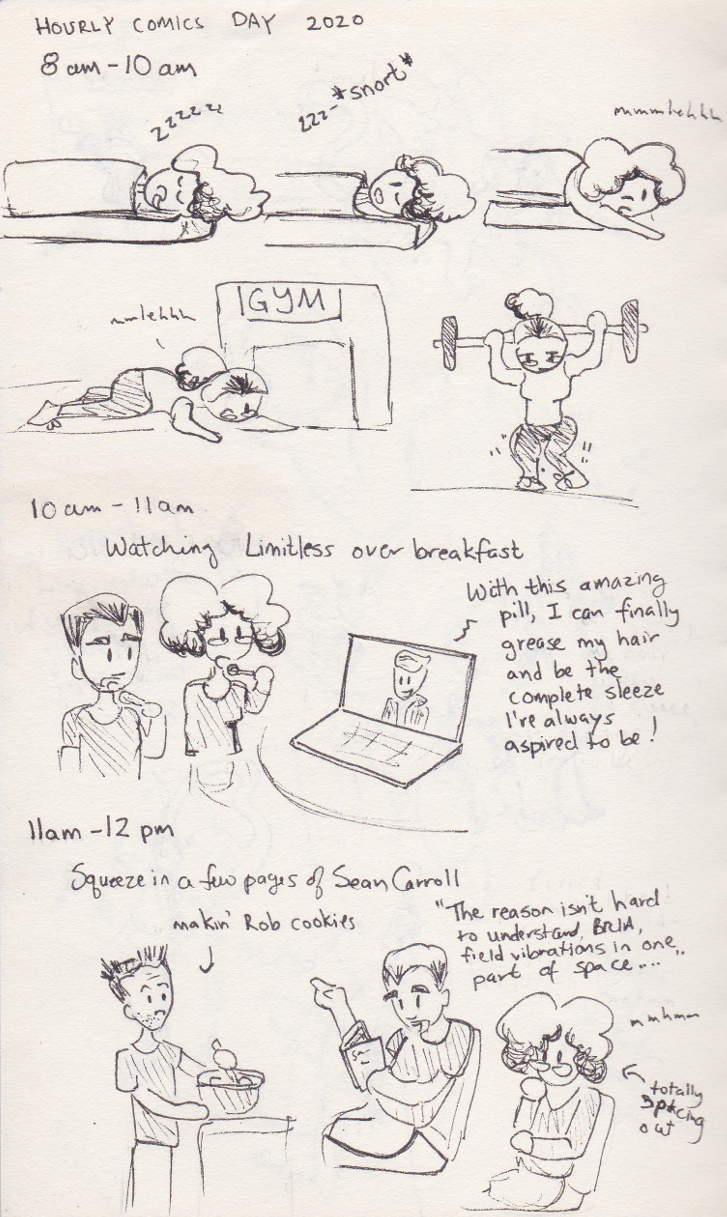 HOURLY COMICS DAY 2020
8 am - 10 am
zzzzzz
zzz- *snort*
mmmmhehhh
mmlehhh
GYM
10 am - 11 am
Watching Limitless over breakfast
With this amazing
pill, I can finally
grease my hair
and be the
complete sleeze
I've always
aspired to be!
11 am - 12 pm
Squeeze in a few pages of Sean Carroll
makin' Rob cookies
"The reason isn't hard
to understand, BRIA,
field vibrations in one
part of space....
mmhmm
totally
spacing
out